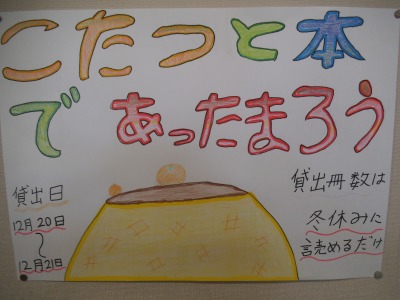 こたつと本
であったまろう
貸出日
12月20日
〜
12月21日
貸出冊数は
冬休みに
読めるだけ